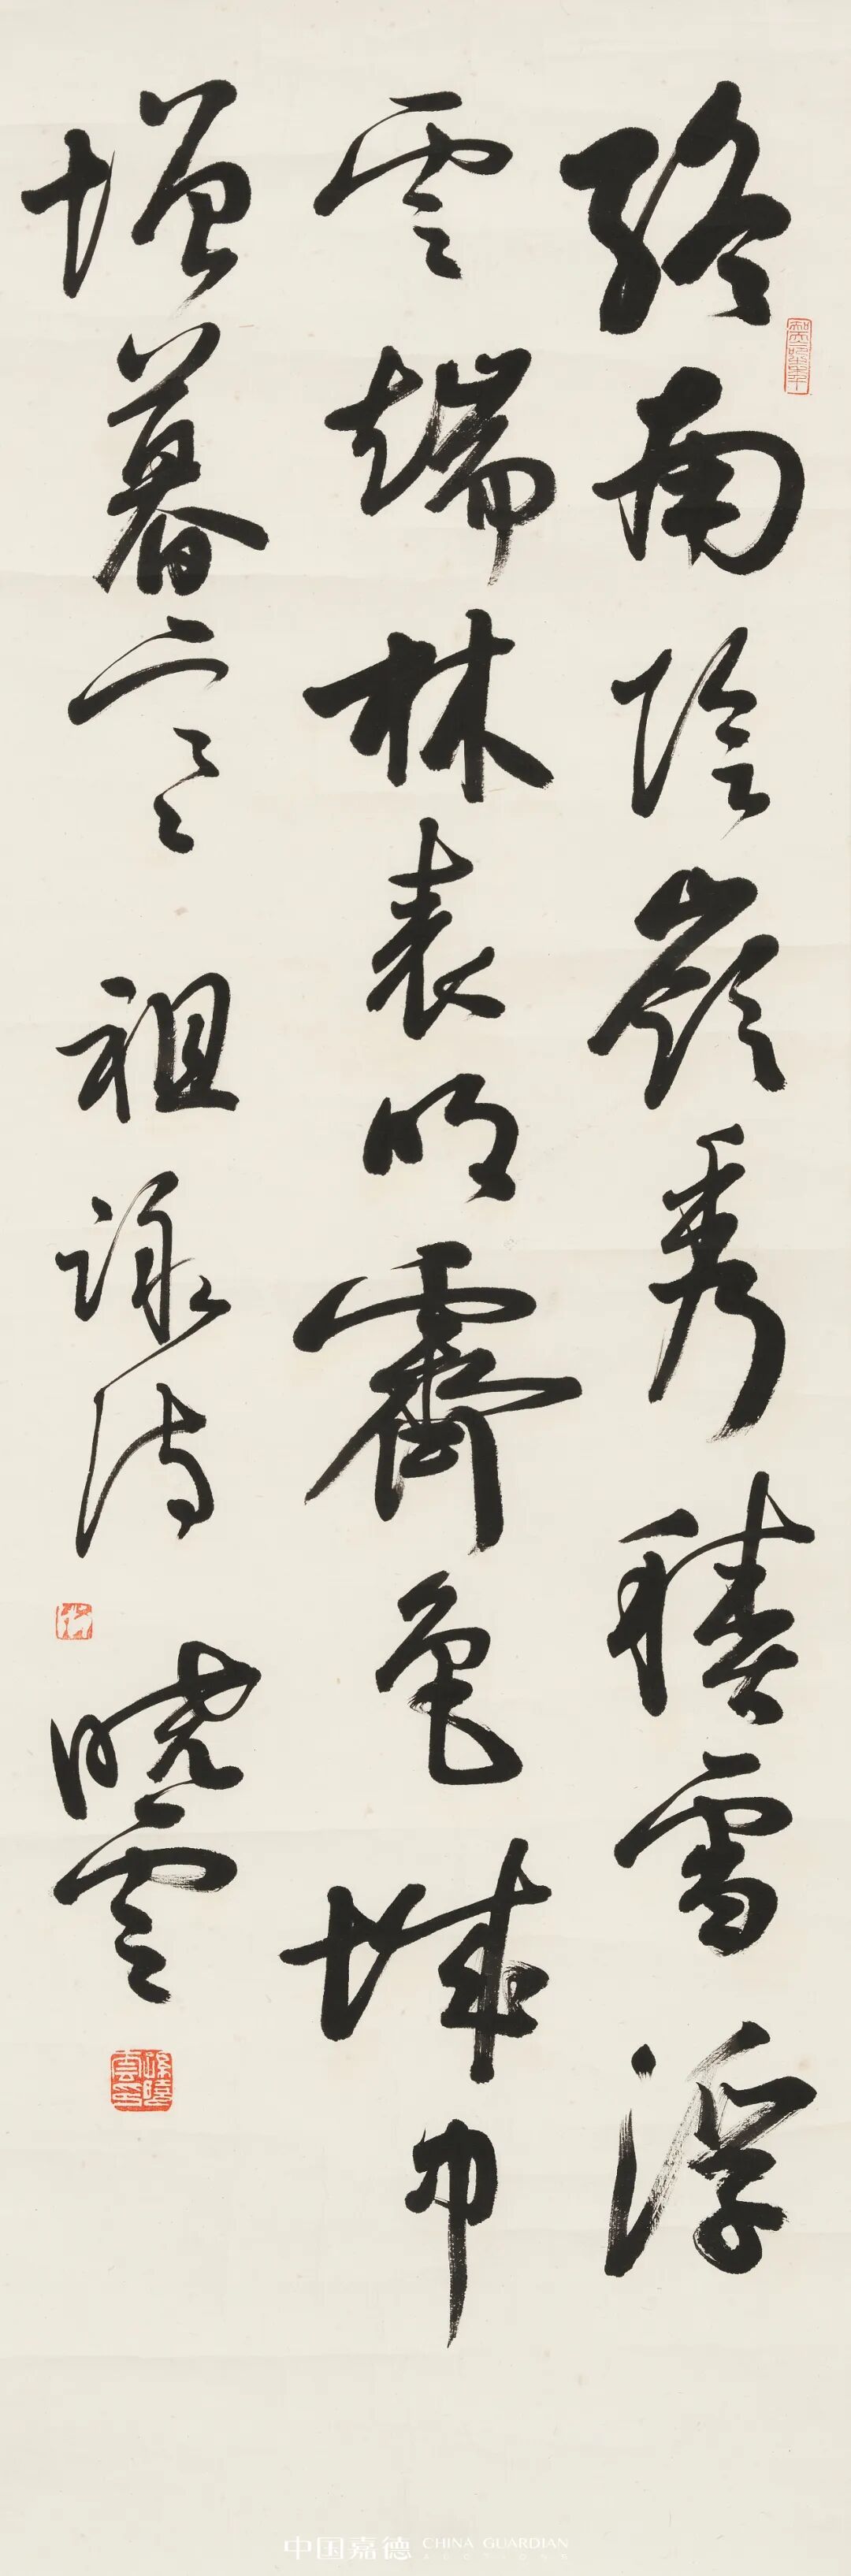 終南陰嶺秀積雪浮
雲端林表明霽色城中
增暮寒 祖詠詩 曉雲
孫曉雲印
中国嘉德 CHINA GUARDIAN
AUCTIONS